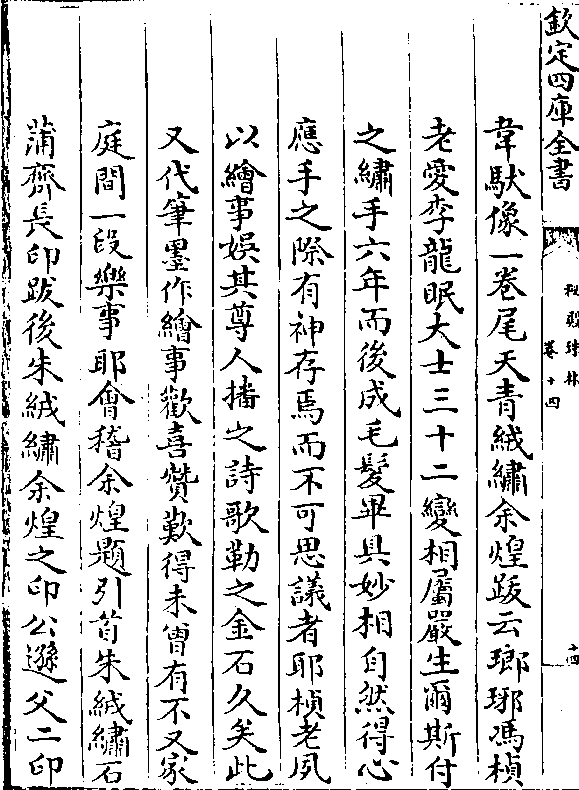 欽定四庫全書
秘殿珠林
卷十四
十四
韋馱像一卷尾天青絨繡余煌跋云瑯琊馮楨
老愛李龍眠大士三十二變相屬嚴生爾斯付
之繡手六年而後成毛髮畢具妙相自然得心
應手之際有神存焉而不可思議者耶楨老夙
以繪事娱其尊人播之詩歌勒之金石久矣此
又代筆墨作繪事歡喜贊歎得未曾有不又家
庭間一段樂事耶會稽余煌題引首朱絨繡石
蒲齊長印跋後朱絨繡余煌之印公遜父二印